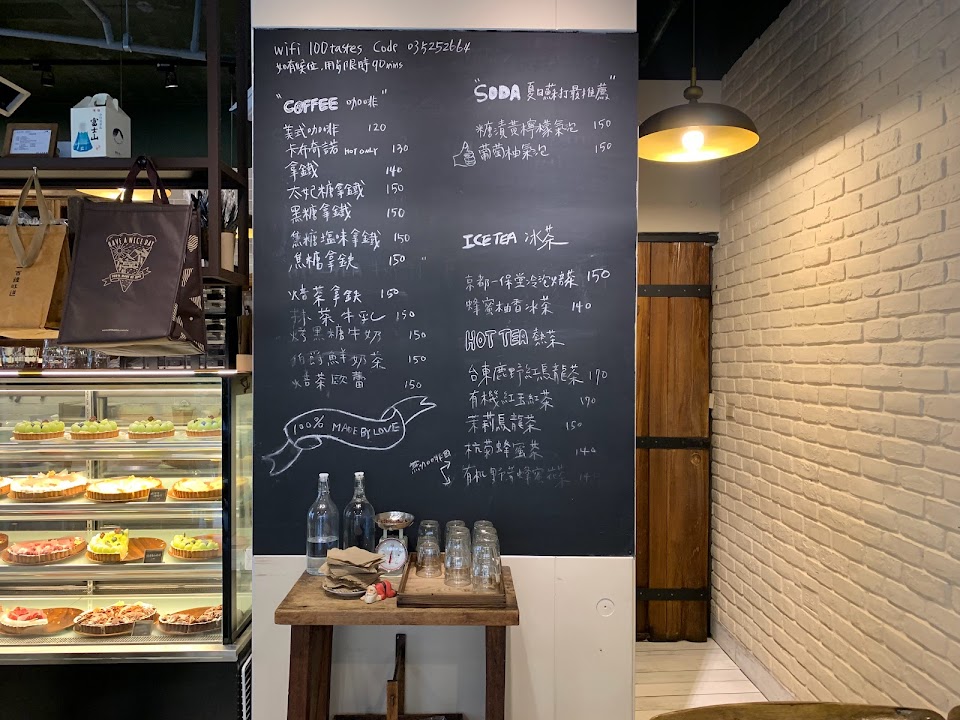 wifi 100tastes Code 035252664
如有候位,用餐限時90mins
"COFFEE 咖啡"
美式咖啡 120
卡布奇諾 HOT ONLY 130
拿鐵 140
太妃糖拿鐵 150
黑糖拿鐵 150
焦糖塩味拿鐵 150
焦糖拿鉄 150
焙茶拿鉄 150
抹茶牛乳 150
烤黑糖牛奶 150
伯爵鮮奶茶 150
焙茶歐蕾 150
100% MADE BY LOVE
"SODA 夏日蘇打最推薦"
糖漬黃檸檬氣泡 150
葡萄柚氣泡 150
ICE TEA 冰茶
京都一保堂冷泡焙茶 150
蜂蜜柚香冰茶 140
HOT TEA 熱茶
台東鹿野紅烏龍茶 170
有機紅玉紅茶 170
茉莉烏龍茶 150
杭菊蜂蜜茶 140
無咖啡因
有机野 蜂蜜 茶
富士山
HAVE A NICE DAY